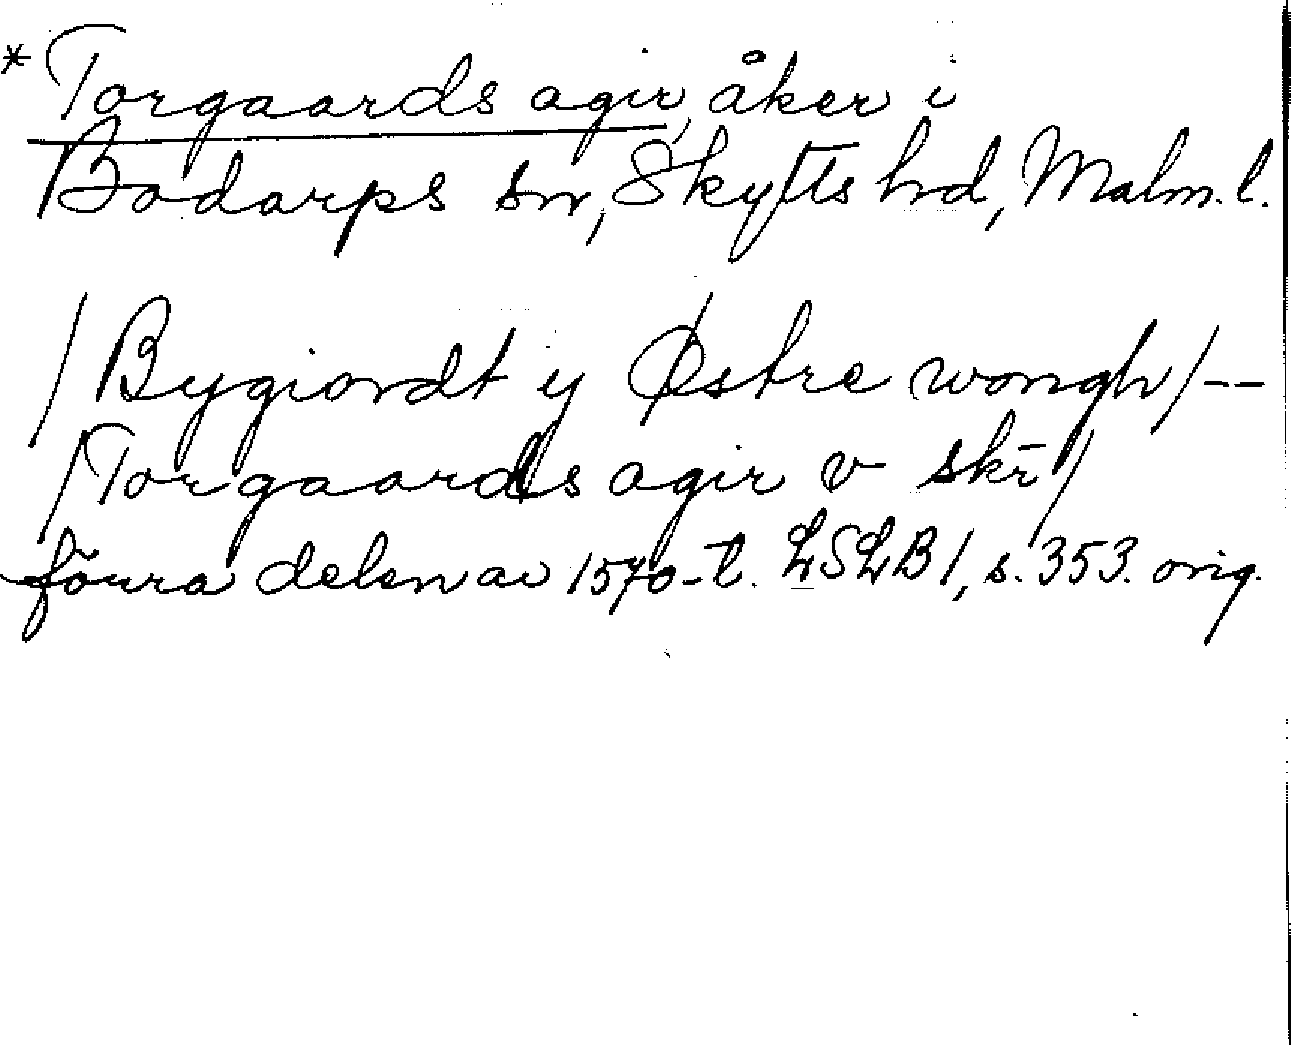 * Torgaards agir, åker i
Bodarps sn, Skytts hd, Malm. l.
/Bygiordt y Østre wongh/--
/Torgaards agir v skr̄/
förra delen av 1570-t. LSLB 1, s. 353. orig.